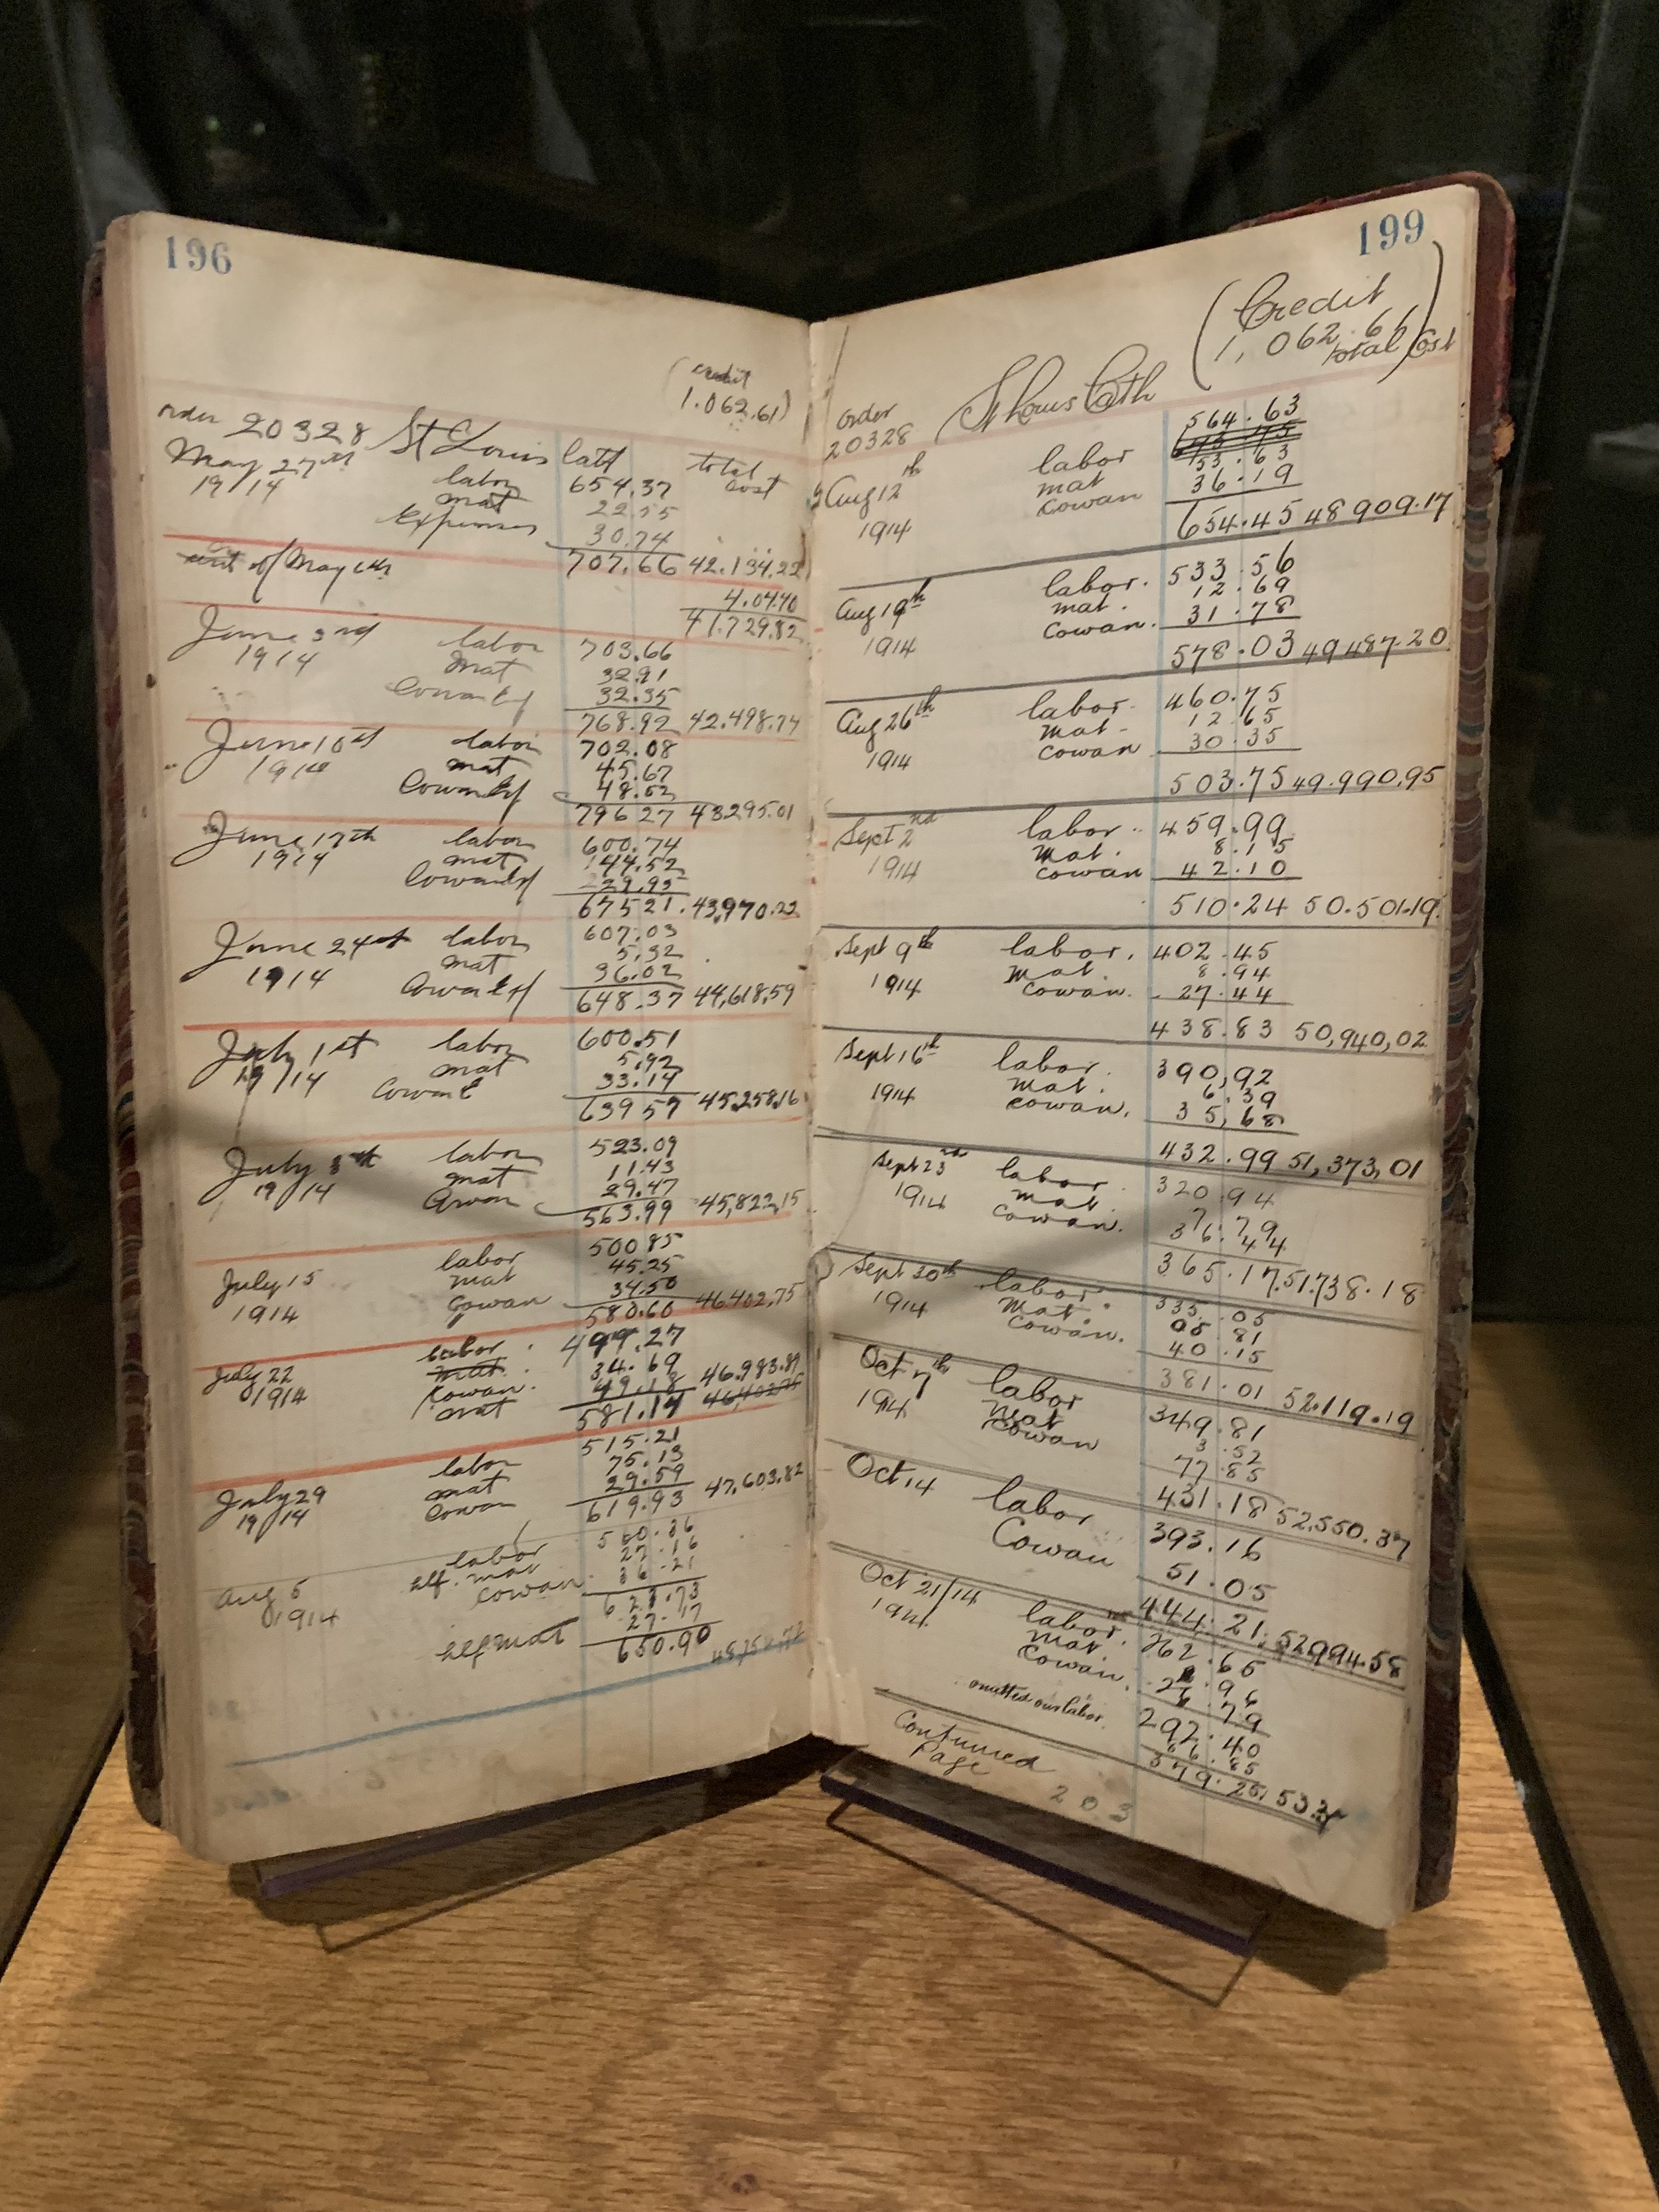 196
(credit
1.062.61)
order 20328 St Louis Cath total
May 27th labor 654.37 cost
1914 mat 22.55
Expenses 30.74
707.66 42.134.22
of May 6th 4.04.40
41.729.82
June 3rd labor 703.66
1914 mat 32.91
Cowan 32.35
768.92 42.498.74
June 10st labor 702.08
1914 mat 45.67
Cowan 48.52
796 27 43295.01
June 17th labor 600.74
1914 mat 44.52
Cowan 29.95
675 21. 43,970.22
June 24st labor 607.03
1914 mat 5.32
Cowan 36.02
648.37 44,618,59
July 1st labor 600.51
1914 mat 5.92
Cowan 33.14
639 57 45,258,16
July 8th labor 523.09
1914 mat 11.43
Cowan 29.47
563.99 45,822,15
labor 500 85
July 15 mat 45.25
1914 Cowan 34.50
580.60 46.402,75
labor 497.27
July 22 mat. 34.69 46.983.89
1914 Cowan. 49.18 46,402.75
mat 581.14
515.21
labor 75.13
July 29 mat 29.59
1914 Cowan 619.93 47,603.82
labor 560.36
Aug 5 mat 27.16
1914 Cowan 36.21
623.73
mat 27.17
650.90
199
(Credit
1,062.61)
total Cost
order St Louis Cath
20328 564.63
Aug 12th labor
1914 mat 53.63
Cowan 36.19
654.45 48 909.17
Aug 19th labor. 533.56
1914 mat. 12.69
Cowan. 31.78
578.03 49487.20
Aug 26th labor. 460.75
1914 mat- 12.65
Cowan 30.35
503.75 49.990,95
Sept 2nd labor.. 459.99
1914 Mat. 8.15
Cowan 42.10
510.24 50.501.19.
Sept 9th labor. 402.45
1914 Mat. 8.94
Cowan. 27.44
438.83 50,940,02
Sept 16th labor. 390,92
1914 Mat. 6.39
Cowan. 35,68
432.99 51,373,01
Sept 23rd labor. 320.94
1914 Mat. 7.79
Cowan. 36.44
365.17. 51.738.18
Sept 30th labor. 335.05
1914 Mat. 05 81
Cowan. 40.15
381.01 52.119.19
Oct 7th labor 349.81
1914 Mat 3.52
Cowan 77.85
431.18 52,550.37
Oct 14 labor 393.16
Cowan 51.05
444.21. 52994.58
Oct 21/14 labor. 262.65
1914 Mat. 2.96
Cowan. 26.79
292.40
omitted our labor. 86.85
379.25,
Continued
Page 203